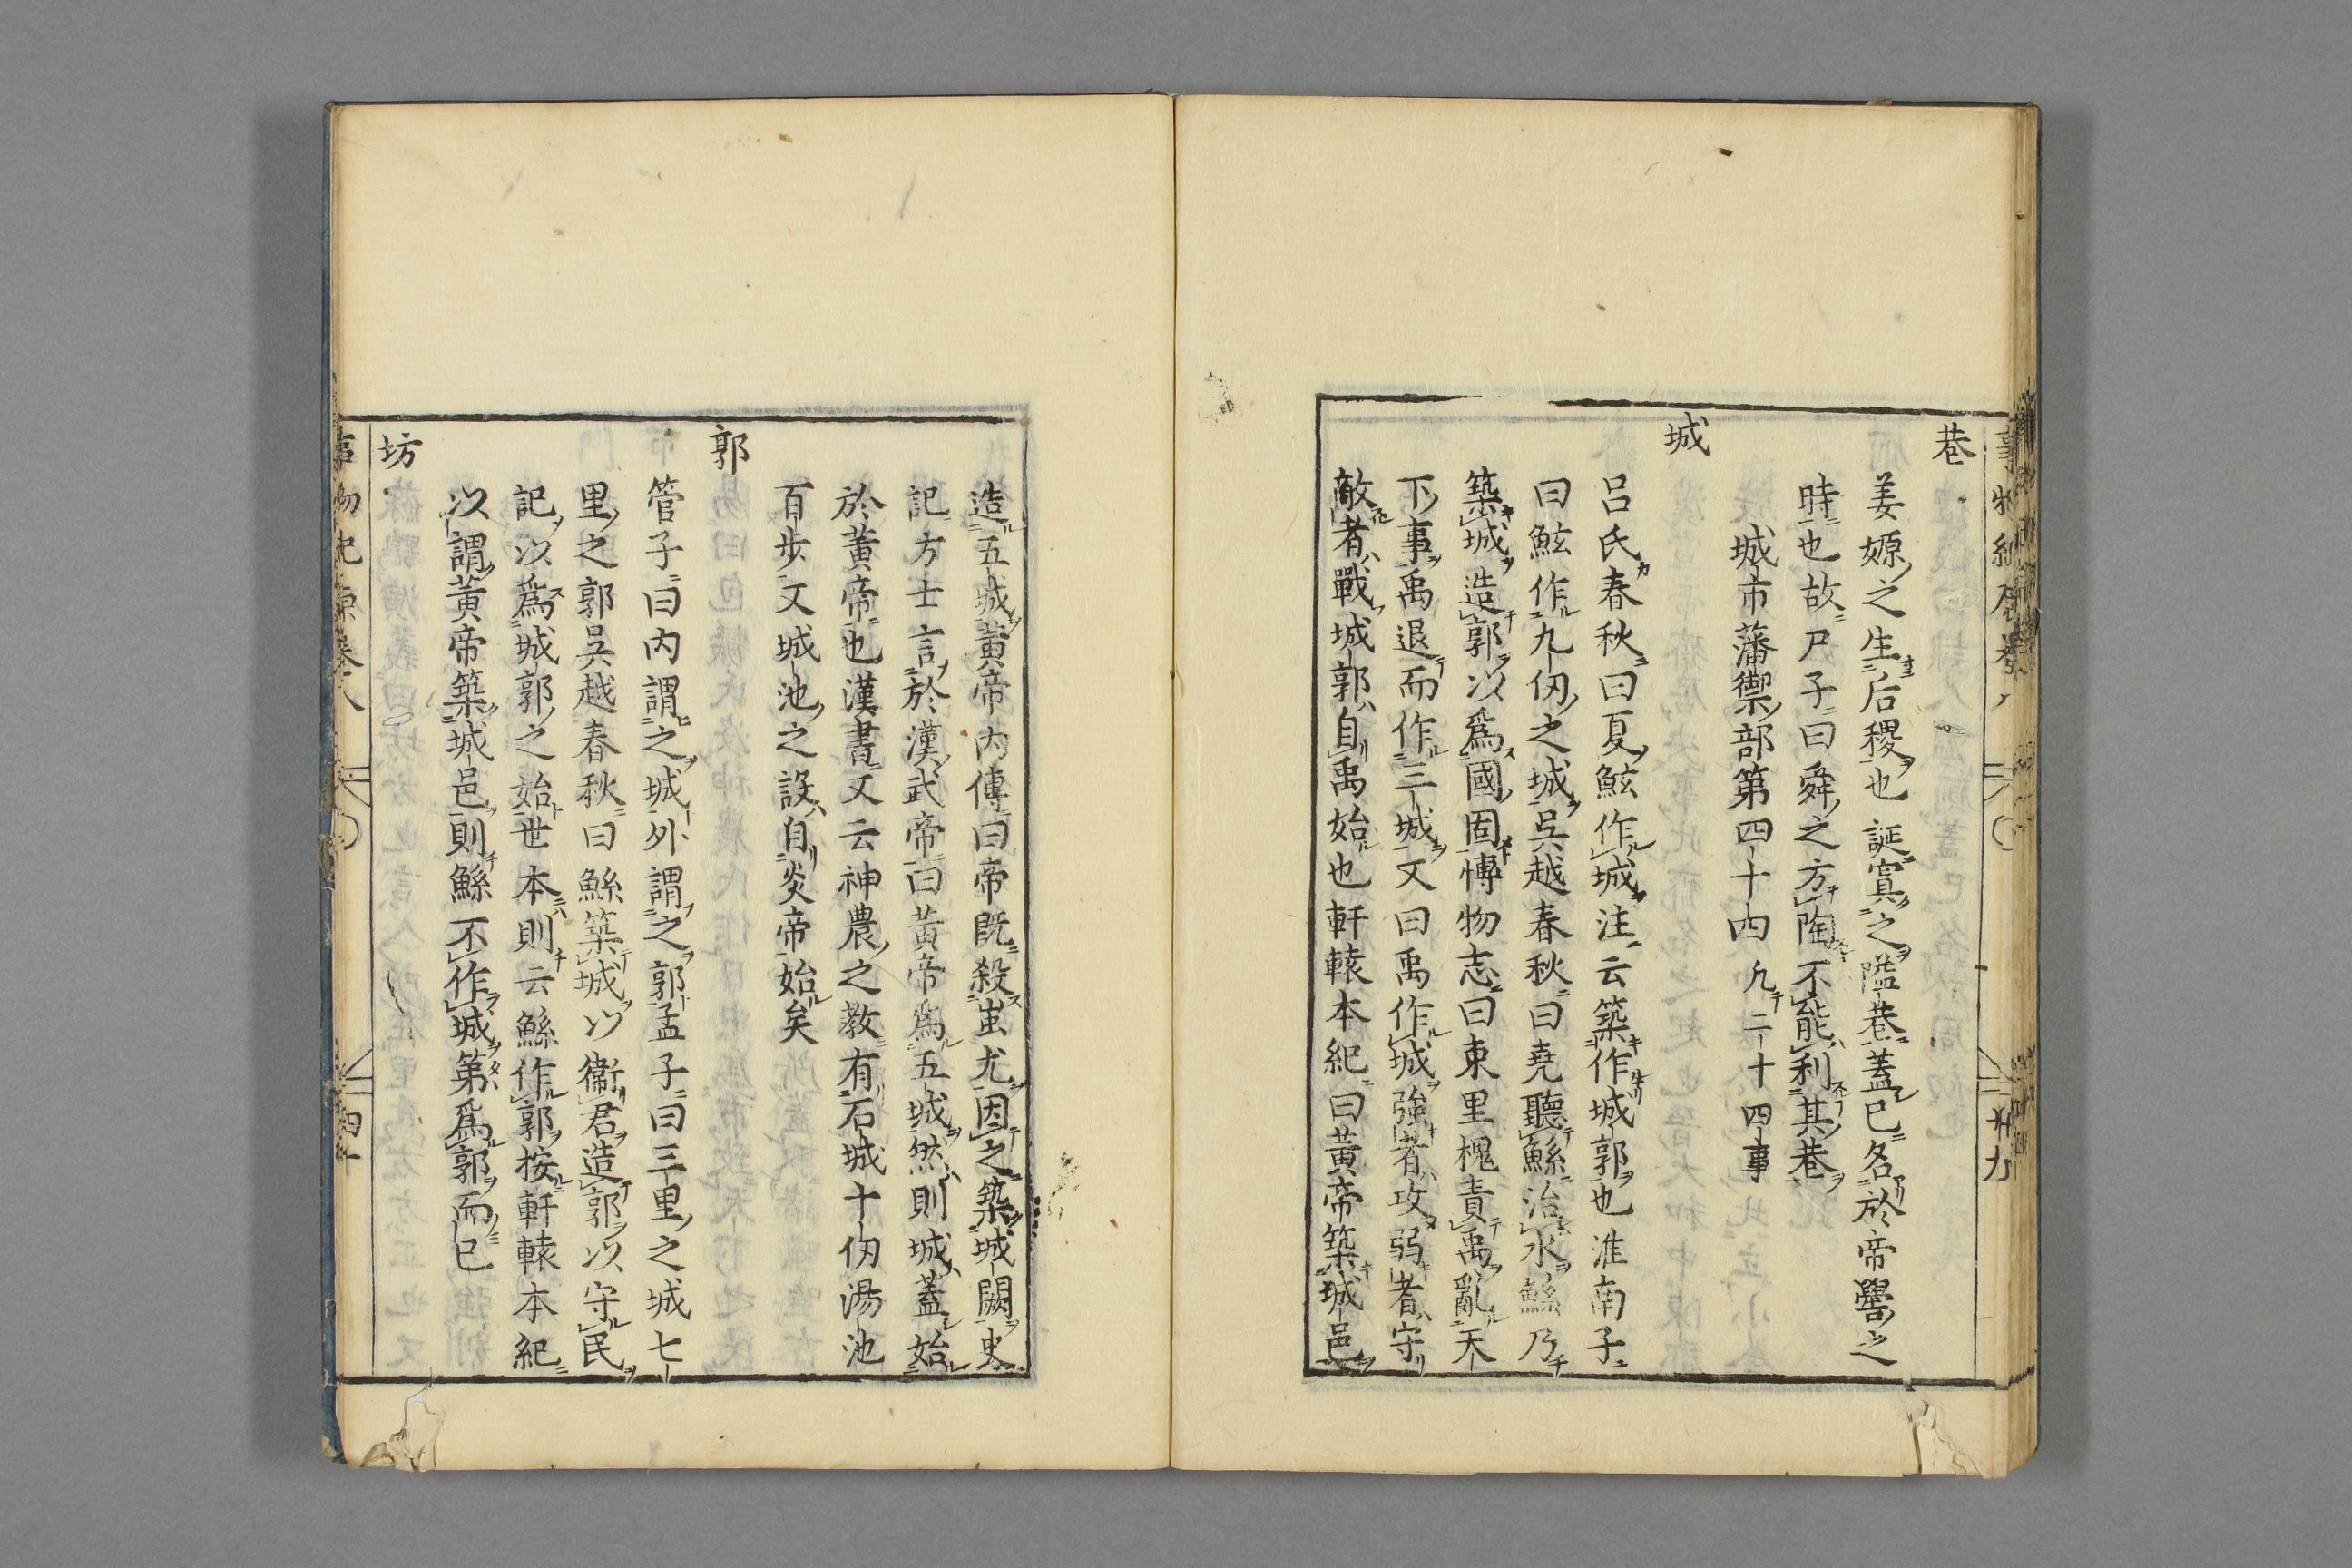 巷
姜嫄之生后稷也誕寘之隘巷蓋已名於帝嚳之
時也故尸子曰舜之方陶不能利其巷
城市藩禦部第四十四凡二十四事
城
呂氏春秋曰夏鮌作城注云築作城郭也淮南子
曰鮌作九仞之城吳越春秋曰堯聽鯀治水鯀乃
築城造郭以爲國固博物志曰東里槐責禹亂天
下事禹退而作三城又曰禹作城強者攻弱者守
敵者戰城郭自禹始也軒轅本紀曰黃帝築城邑
造五城黃帝內傳曰帝既殺蚩尤因之築城闕史
記方士言於漢武帝曰黃帝爲五城然則城蓋始
於黃帝也漢書又云神農之教有石城十仞湯池
百步又城池之設自炎帝始矣
郭
管子曰內謂之城外謂之郭孟子曰三里之城七
里之郭吳越春秋曰鯀築城以衞君造郭以守民
記以爲城郭之始世本則云鯀作郭按軒轅本紀
以謂黃帝築城邑則鯀不作城第爲郭而已
坊
事物紀原卷八 四十